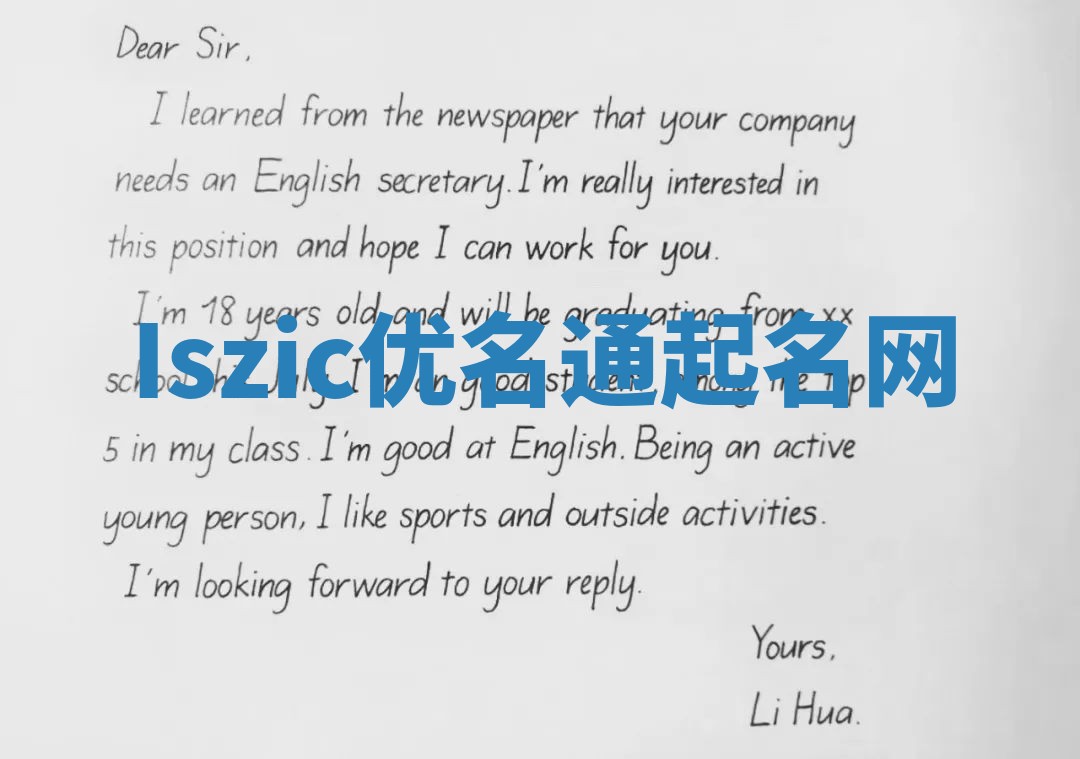 Dear Sir,
I learned from the newspaper that your company
needs an English secretary. I'm really interested in
this position and hope I can work for you.
I'm 18 years old and will be graduating from xx
Iszic优名通起名网
school July. I'm good student the top
5 in my class. I'm good at English. Being an active
young person, I like sports and outside activities.
I'm looking forward to your reply.
Yours,
Li Hua.